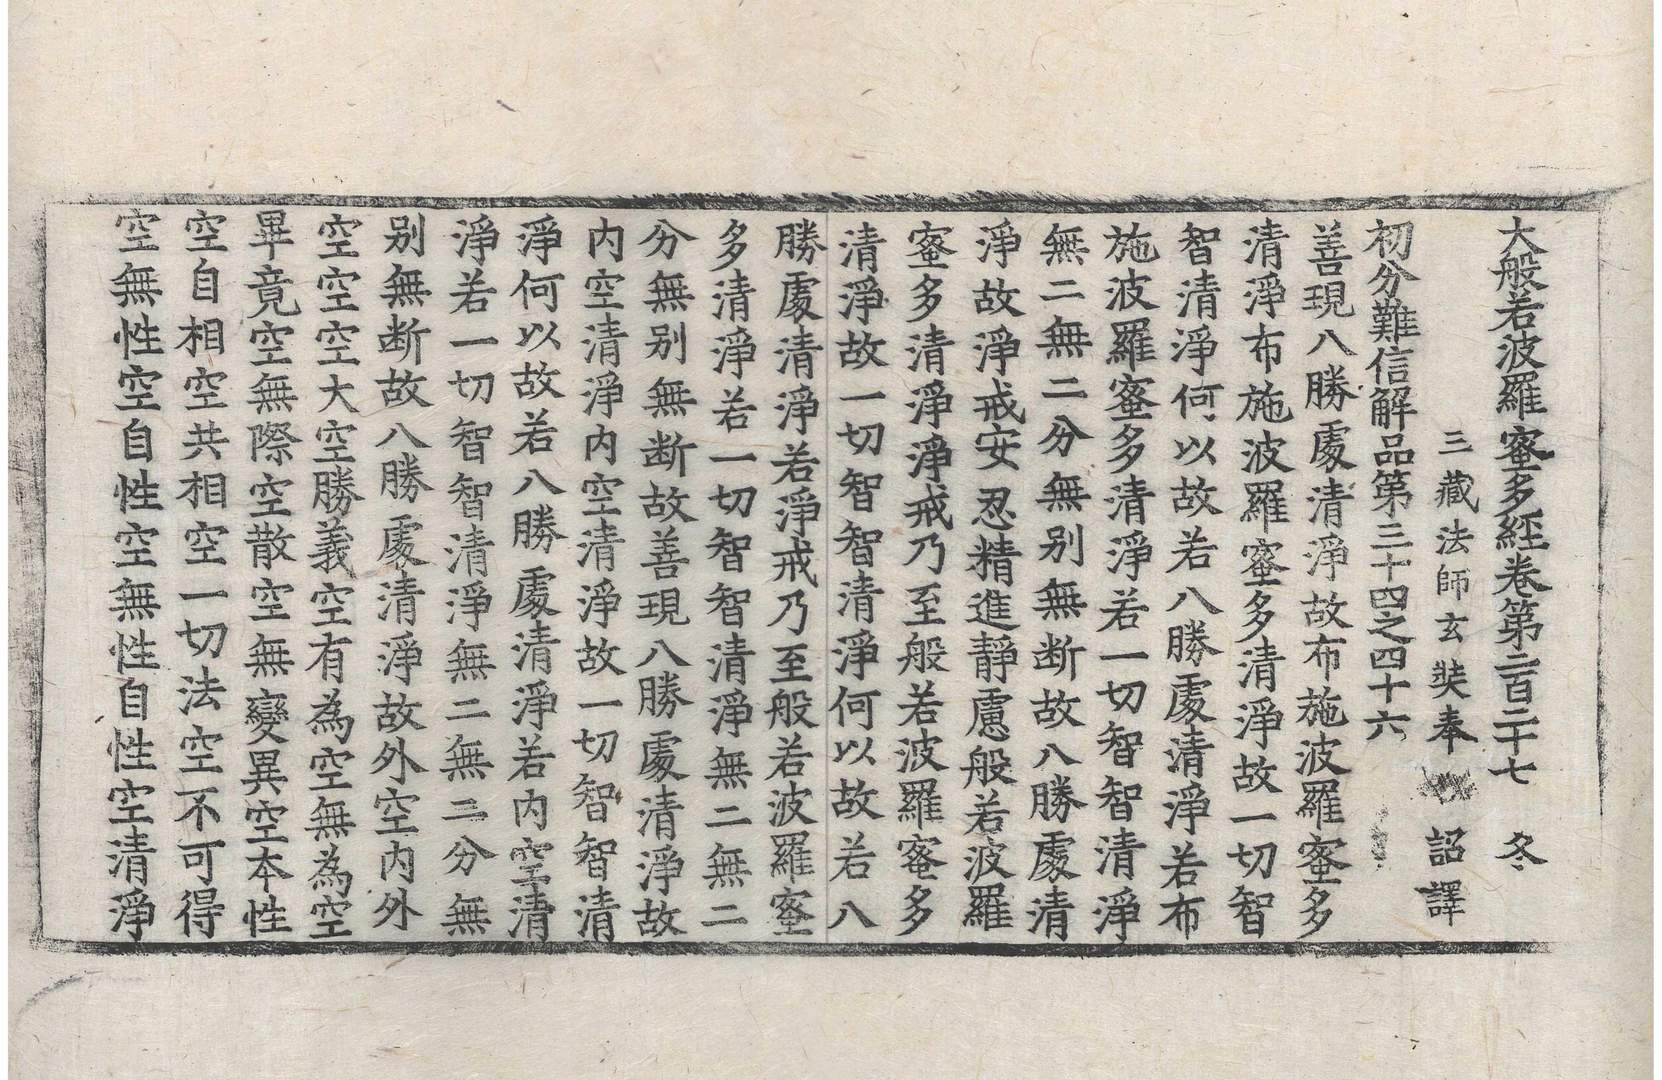 大般若波羅蜜多經卷第二百二十七　冬
三藏法師玄奘奉　詔譯
初分難信解品第三十四之四十六
善現八勝處清淨故布施波羅蜜多
清淨布施波羅蜜多清淨故一切智
智清淨何以故若八勝處清淨若布
施波羅蜜多清淨若一切智智清淨
無二無二分無別無断故八勝處清
淨故淨戒安忍精進靜慮般若波羅
蜜多清淨淨戒乃至般若波羅蜜多
清淨故一切智智清淨何以故若八
勝處清淨若淨戒乃至般若波羅蜜
多清淨若一切智智清淨無二無二
分無別無断故善現八勝處清淨故
內空清淨內空清淨故一切智智清
淨何以故若八勝處清淨若內空清
淨若一切智智清淨無二無二分無
別無断故八勝處清淨故外空內外
空空空大空勝義空有為空無為空
畢竟空無際空散空無變異空本性
空自相空共相空一切法空不可得
空無性空自性空無性自性空清淨